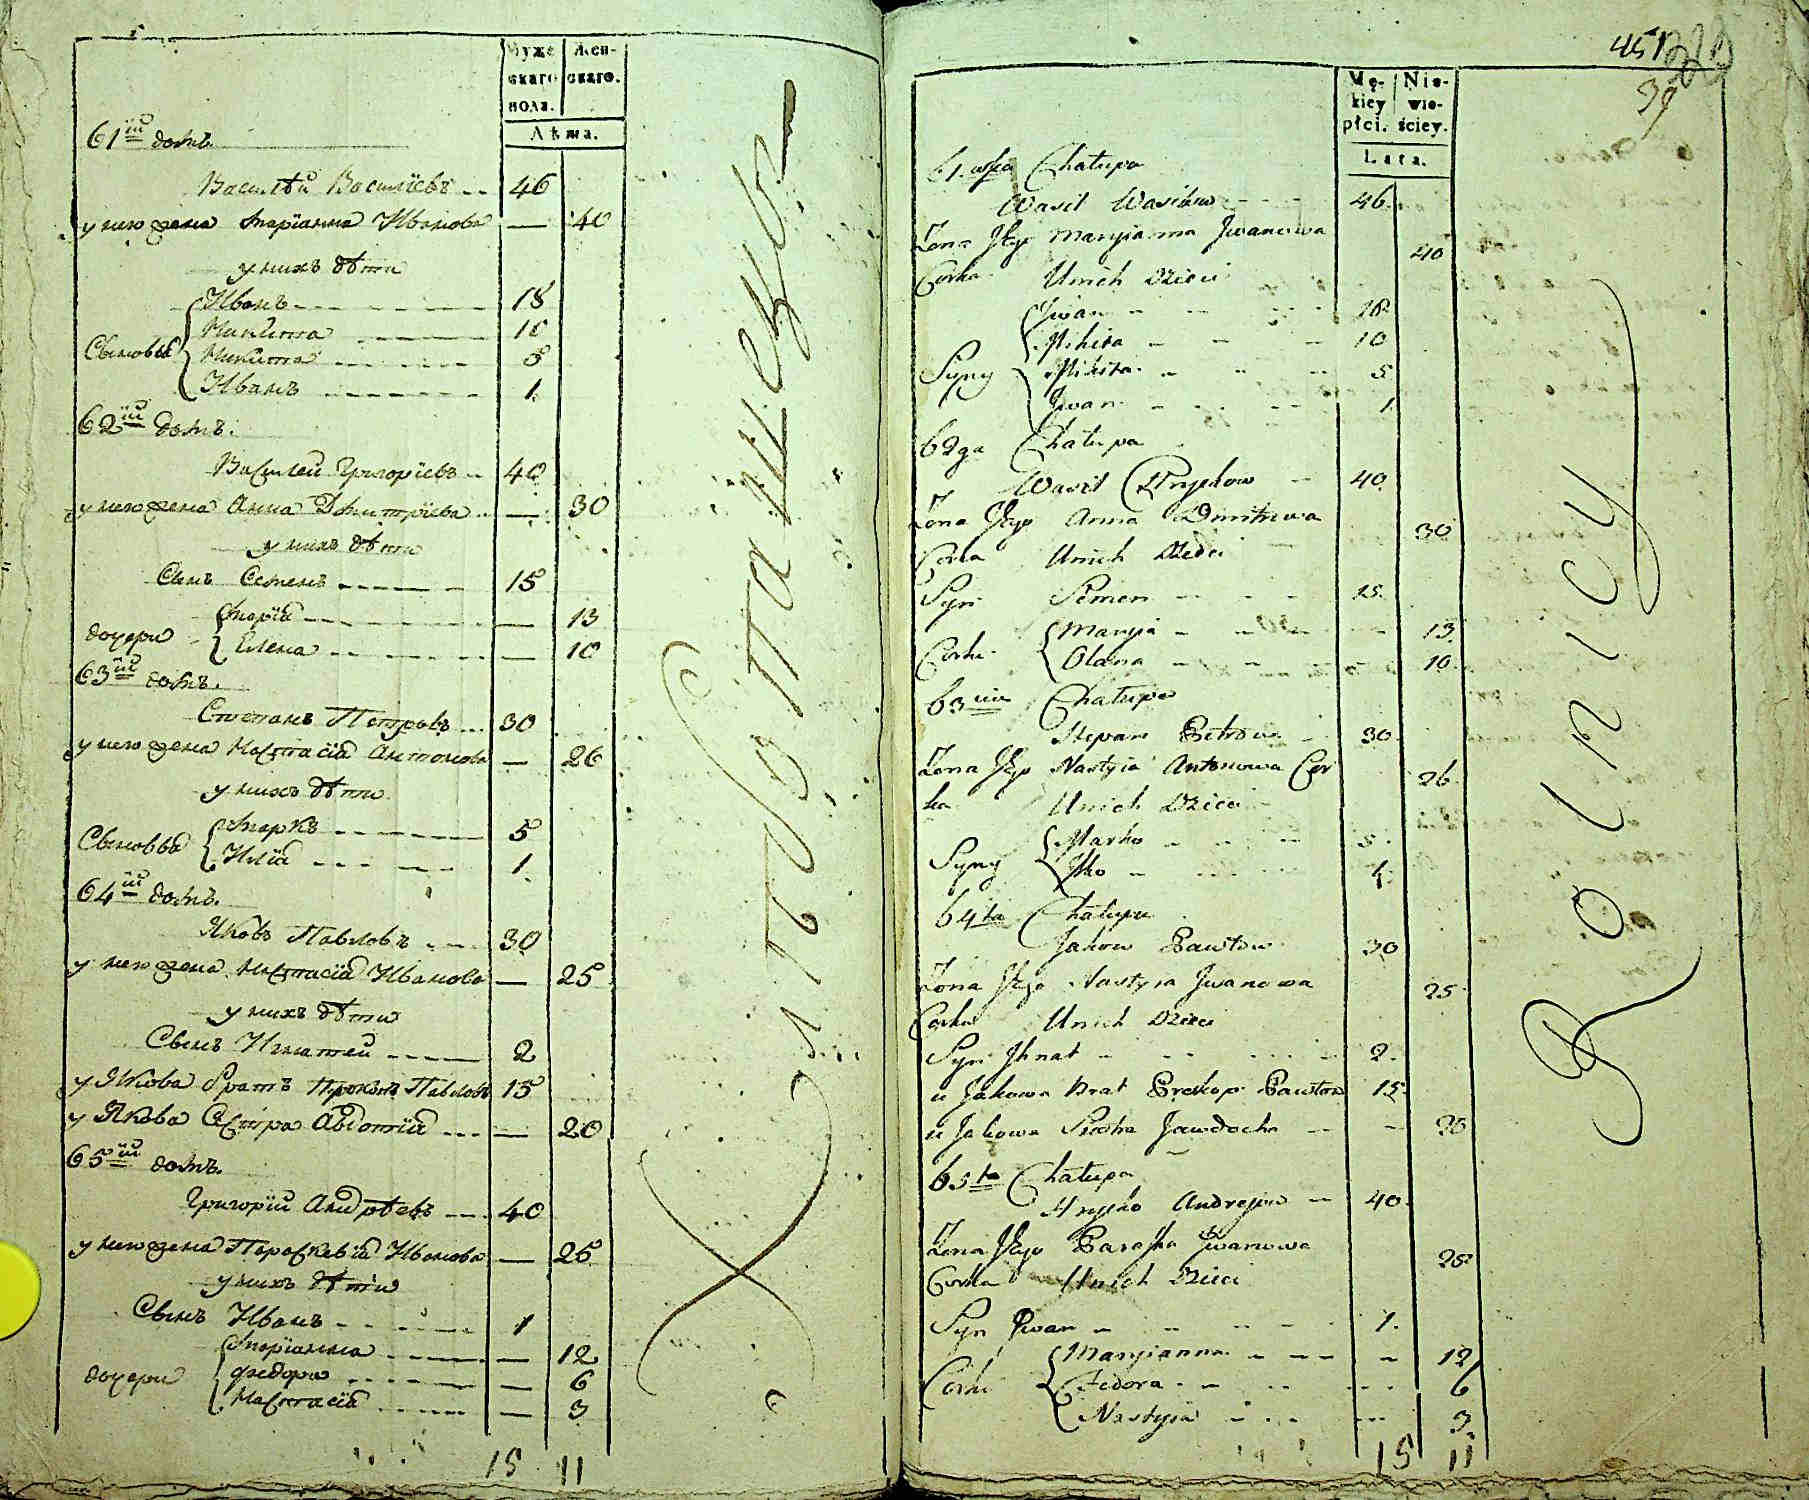 Муже
скаго
пола.
Жен-
скаго.
Лѣта.
61й домъ.
Василѣй Васильевъ 46
у него жена Марїанна Иванова — 40
у нихъ дѣти
Иванъ 18
Никита 10
Сыновья Никита 5
Иванъ 1.
62й домъ.
Василей Григорїевъ 40
у него жена Анна Дмитрїева — 30
у нихъ дѣти
Сынъ Семенъ 15
Марїа — 13
дочери Елена — 10
63й домъ.
Степанъ Петровъ 30
у него жена Настасїа Антонова — 26
у нихъ дѣти
Марко 5
Сыновья Илїа 1.
64й домъ.
Яковъ Павловъ 30
у него жена Настасїа Иванова — 25
у нихъ дѣти
Сынъ Игнатей 2
у Якова братъ Прокопъ Павловъ 15
у Якова Сестра Авдотїа — 20
65й домъ.
Григорїй Андрѣевъ 40
у него жена Параскевїа Иванова — 25
у нихъ дѣти
Сынъ Иванъ 1
Марїанна — 12
дочери Федора — 6
Настасїа — 3
15 11
451
39
Mę-
kiey
płci.
Nie-
wie-
ściey.
Lata.
61wsza Chałupa
Wasil Wasilow 46.
Zona Jego Maryianna Jwanowa
Corka 40
Unich Dzieci
Jwan 18
Mikita 10
Syny Mikita 5
Jwan 1.
62ga Chałupa
Wasil Hryhow 40.
Zona Jego Anna Dmitrowa
Corka 30
Unich Dzieci
Syn Semen 15.
Maryia 13.
Corki Olana 10.
63cia Chałupa
Stepan Petrow 30.
Zona Jego Nastyia Antonowa Cor
ka 26.
Unich Dzieci
Marko 5.
Syny Jlko 1.
64ta Chałupa
Jakow Pawłow 30
Zona Jego Nastyia Jwanowa
Corka 25.
Unich Dzieci
Syn Jhnat 2.
u Jakowa Brat Prokop Pawłow 15.
u Jakowa Siostra Jawdocha 20
65ta Chałupa
Hryćko Andrejew 40.
Zona Jego Paraska Jwanowa
Corka 25
Unich Dzieci
Syn Jwan 1.
Maryianna 12
Corki Fedora 6
Nastyia 3.
15 11
Rolnicy